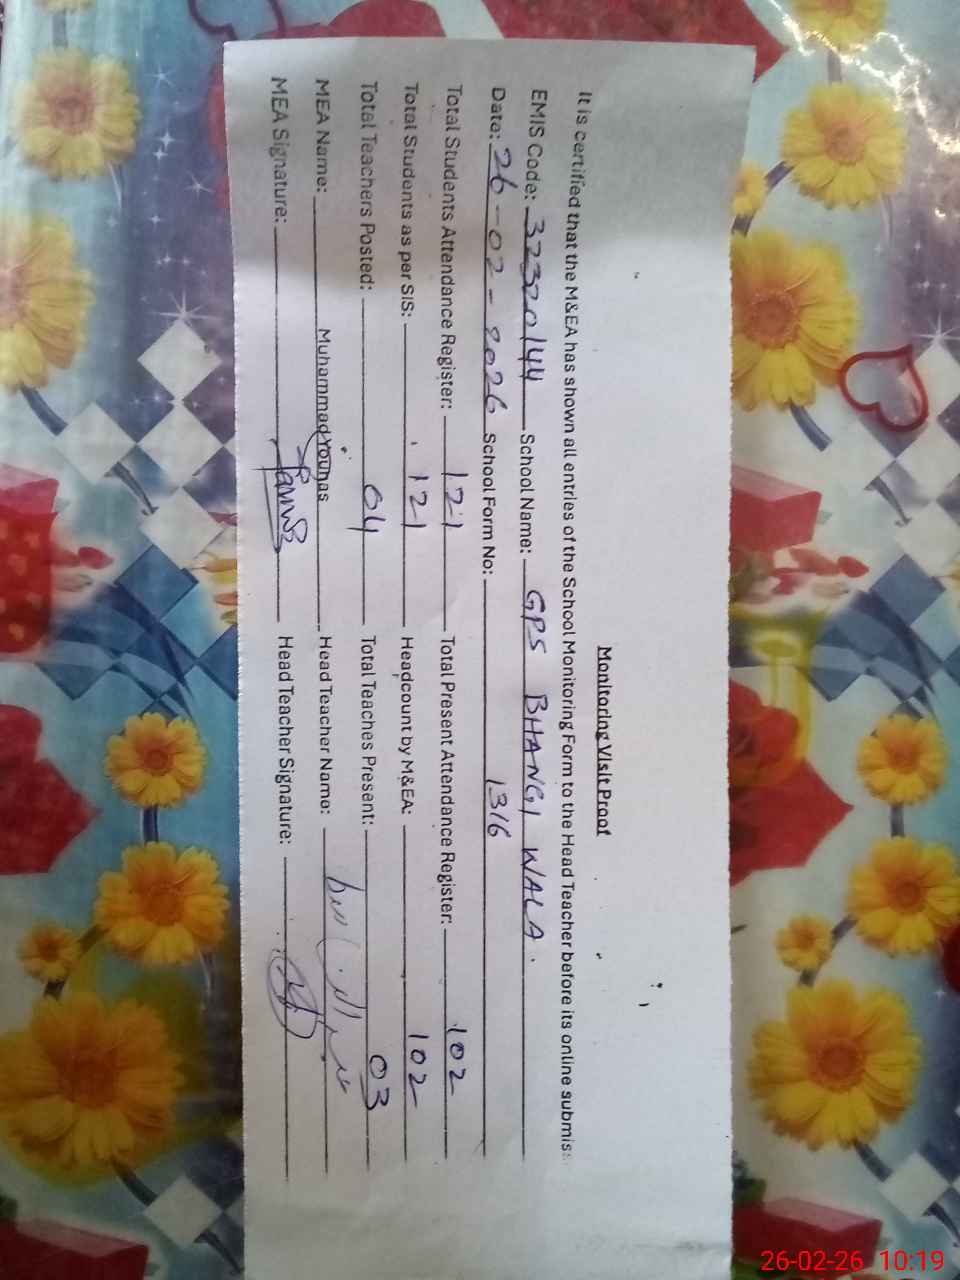 Monitoring Visit Proof
It is certified that the M&EA has shown all entries of the School Monitoring Form to the Head Teacher before its online submis
EMIS Code: 32320144 School Name: GPS BHANGI WALA.
Date: 26-02-2026 School Form No: 1316
Total Students Attendance Register: 121 Total Present Attendance Register: 102
Total Students as per SIS: 121 Headcount by M&EA: 102
Total Teachers Posted: 04 Total Teaches Present: 03
MEA Name: Muhammad Younas Head Teacher Name:
MEA Signature: Head Teacher Signature:
26-02-26 10:19